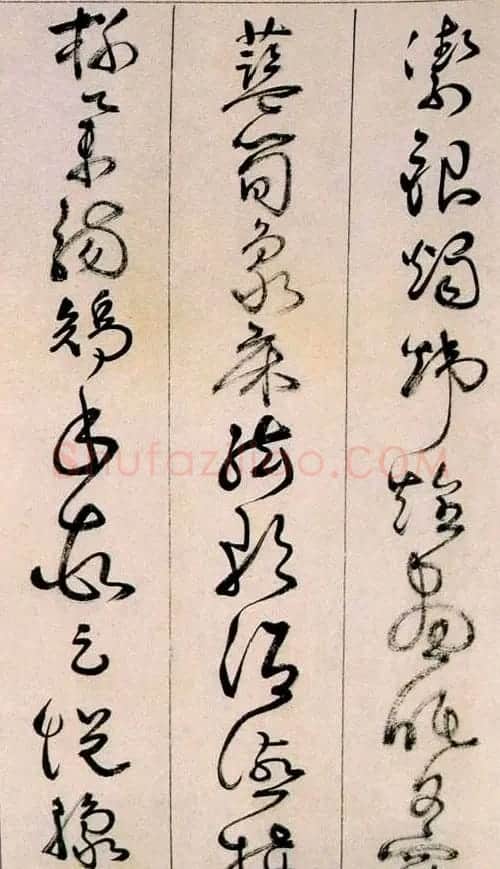 潔銀燭煒煌晝眠夕寐
藍筍象床絃歌酒讌接
杯舉觴矯手頓足悦豫